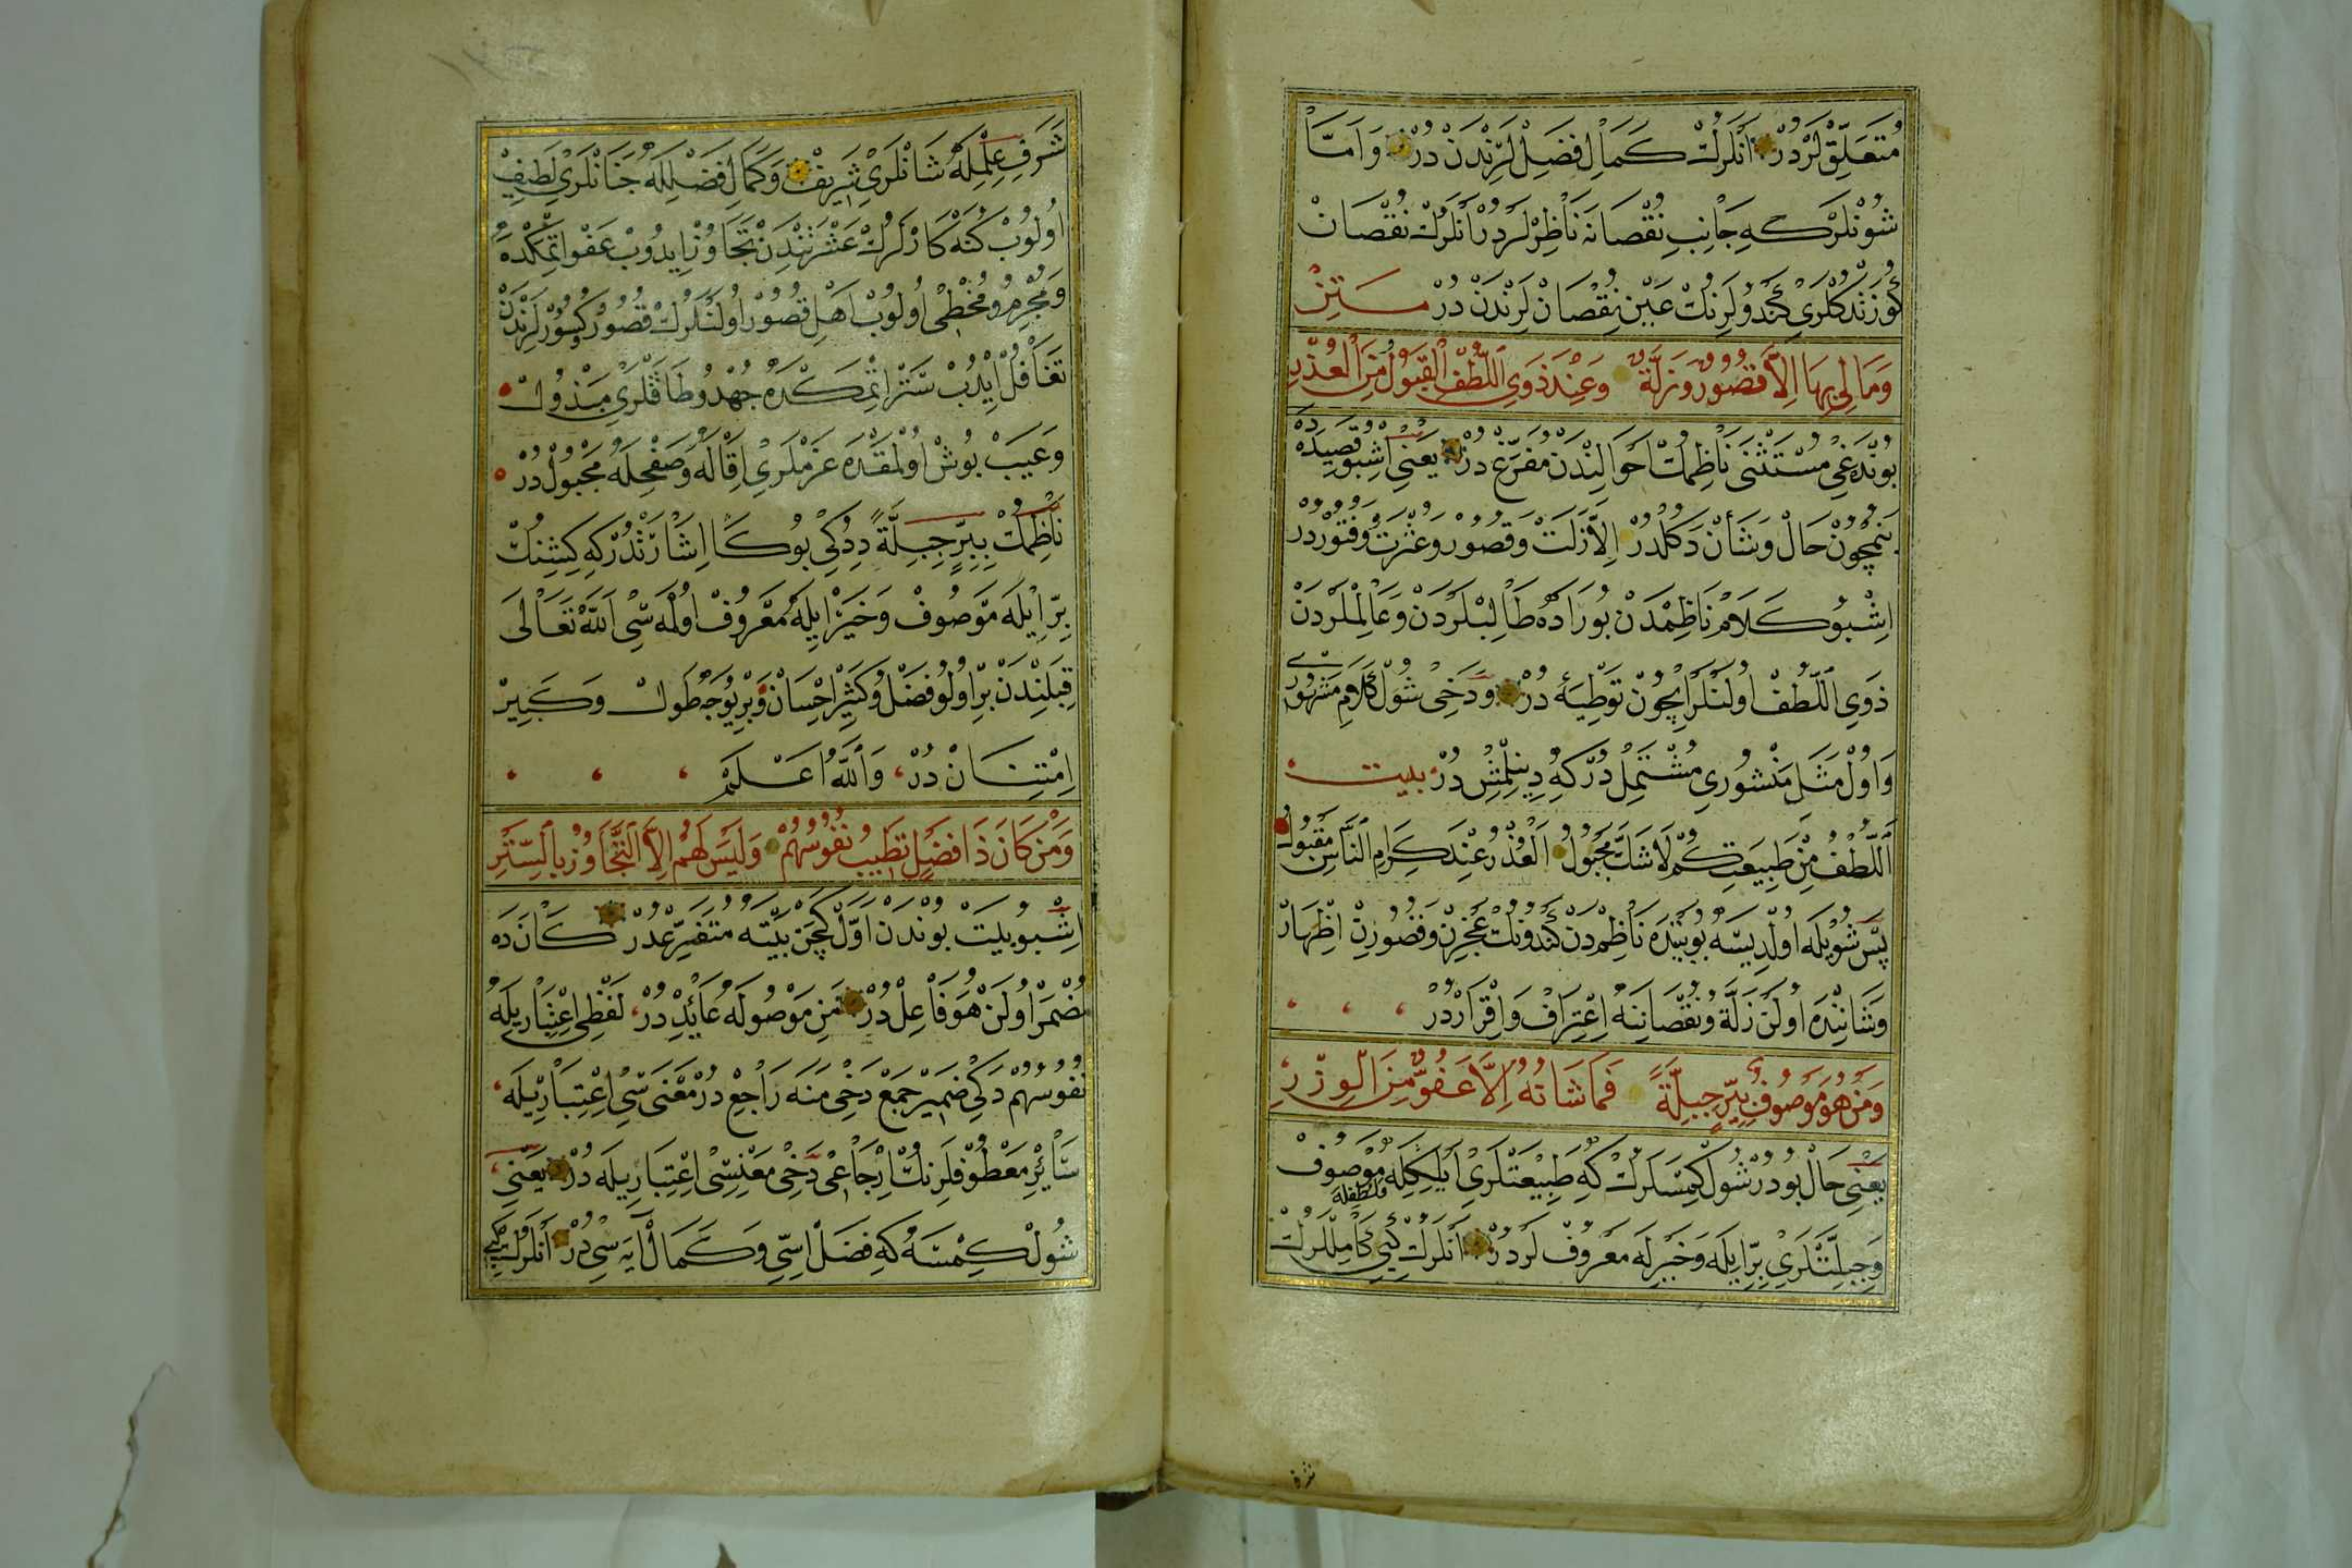 مُتَعَلِّقْلَرْدُرْ اَنْلَرُكْ كَمَالِ فَضِلْلَرِنْدَنْ دُرْ وَاَمَّا
شُونْلَرْكِه جَانِبِ نُقْصَانَه نَاظِرْلَرْدِرْ اَنْلَرُكْ نُقْصَانْ
كَندُولَرِنُكْ عَيْنِ نُقْصَانْلَرِنْدَنْ دُرْ مـتـن
وَمَا لِي بِهَا اِلَّا قُصُورٌ وَزَلَّةٌ وَعِنْدَ ذَوِي اللُّطْفِ الْقَبُولُ مِنَ الْعُذْرِ
بُونْدَه دَخِي مُسْتَثْنٰى نَاظِمُكْ اَحْوَالِنْدَنْ مُفَرَّغْ دُرْ يَعْنِي اِشْبُو قَصِيدَه دَه
بَنِمْچُونْ حَالْ وَشَأنْ دَكُلْدُرْ اِلَّا زَلَّتْ وَقُصُورْ وَعَثْرَتْ وَفُتُورْدُرْ
اِشْبُو كَلَامْ نَاظِمْدَنْ بُورَادَه طَالِبْلَرْدَنْ وَعَالِمْلَرْدَنْ
ذَوِي اللُّطْفْ اُولَنْلَرْ اِيچُونْ تَوْطِئَه دُرْ وَدَخِي شُولْ كَلَامِ مَشْهُورِي
وَاُولْ مَثَلِ مَنْشُورِي مُشْتَمِلْ دُرْكِه دِينِلْمِشْ دُرْ بيت
اَللُّطْفُ مِنْ طَبِيعَتِكُمْ لَا شَكَّ مَجْبُولُ اَلْعُذْرُ عِنْدَ كِرَامِ النَّاسِ مَقْبُولُ
پَسْ شُويْلَه اُولِيسَه بُو بَيْتْدَه نَاظِمْدَنْ كَنْدُونُكْ عَجْزِنْ وَقُصُورِنْ اِظْهَارْ
وَشَانِنْدَه اُولَنْ زَلَّةْ وَنُقْصَانِنَه اِعْتِرَافْ وَاِقْرَارْدُرْ
وَمَنْ هُوَ مَوْصُوفٌ بِبِرٍّ جِبِلَّةً فَمَا شَانُهُ اِلَّا عَفُوٌّ مِنَ الْوِزْرِ
يَعْنِي حَالْ بُودُرْ شُولْ كِمْسَلَرُكْ كِه طَبِيعَتْلَرِي اَيُلِكِلَه مَوْصُوفْ
وَلُطْفِلَه
وَجِبِلَّتْلَرِي بِرّ اِيلَه وَخَيْرِلَه مَعْرُوفْ لَرْدُرْ اَنْلَرُكْ كِبِي كَامِلْلَرُكْ
شرف
شَرَفِ عِلْمِلَه شَانْلَرِي شَرِيفْ وَكَمَالِ فَضْلِلَه جَنَانْلَرِي لَطِيفْ
اُولُوبْ كُنَه كَارْلَرُكْ عَثْرَتِنْدَنْ تَجَاوُزْ اِيدُوبْ عَفْو اِتْمَكْدَه
وَمُجْرِمْ وَمُخْطِى اُولُوبْ اَهْلِ قُصُورْ اُولَنْلَرُكْ قُصُورْ وَكُسُورْلَرِنْدَنْ
تَغَافُلْ اِيدُبْ سَتْرْ اِتْمَكْدَه جُهْدْ وَطَاقَتْلَرِي مَبْذُولْ
وَعَيْبْ پُوشْ اُولْمَقْدَه عَزْمْلَرِي اِقَالَه وَصَفْحِلَه مَجْبُولْ دُرْ
نَاظِمُكْ بِبِرٍّ جِبِلَّةً دِدُكِي بُوكَا اِشَارَتْدُرْكِه كِشِنُكْ
بِرّ اِيلَه مَوْصُوفْ وَخَيْر اِيلَه مَعْرُوفْ اُولْمَه سِي اَللّٰه تَعَالٰى
قِبَلِنْدَنْ بِرّ اُولُو فَضْلْ وَكَثِيرْ اِحْسَانْ وَبِرْ يُوجَه طَوْلْ وَكَبِيرْ
اِمْتِنَانْ دُرْ، وَاللّٰهُ اَعْلَمُ
وَمَنْ كَانَ ذَا فَضْلٍ تَطِيبُ نُفُوسُهُمْ وَلَيْسَ لَهُمْ اِلَّا التَّجَاوُزُ بِالسَّتْرِ
اِشْبُو بَيْتْ بُونْدَنْ اَوَّلْ كَچَنْ بَيْتَه مُتَفَرِّعْدُرْ كَانَ دَه
مُضْمَرْ اُولَنْ هُوَ فَاعِلْ دُرْ مَنِ مَوْصُولَه عَائِدْ دُرْ، لَفْظِى اِعْتِبَارِيلَه
نُفُوسُهُمْ دَكِي ضَمِيرِ جَمْعْ دَخِي مَنَه رَاجِعْ دُرْ مَعْنَى سِي اِعْتِبَارِيلَه،
سَائِرِ مَعْطُوفْلَرِنُكْ اِرْجَاعِى دَخِي مَعْنِسِى اِعْتِبَارِيلَه دُرْ يَعْنِي
شُولْ كِمْسَه كِه فَضْلْ اِسِّي وَكَمَالْ اَيَه سِي دُرْ اَنْلَرُكْ